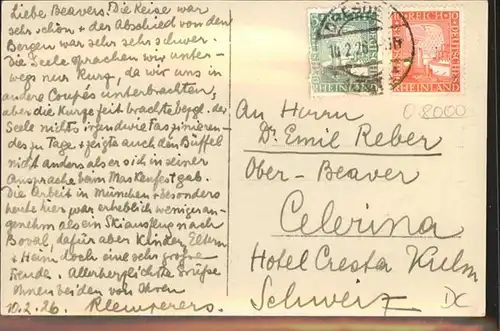 Liebe Beavers! Die Reise war
sehr schön + der Abschied von den
Bergen war sehr sehr schwer.
Die Seele sprachen wir unter-
wegs nur kurz, da wir uns in
andere Coupés unterbrachten;
aber die kurze Zeit brachte bezgl. der
Seele nichts irgendwie Faszinieren-
des zu Tage + zeigte auch den Büffel
nicht anders als er sich in seiner
Ansprache beim Maskenfest gab.
Die Arbeit in München + besonders
heute hier war erheblich weniger an-
genehm als ein Skiausflug nach
Boval, dafür aber Kinder, Eltern
+ Heim doch eine sehr große
Freude. Allerherzlichste Grüße
Ihnen beiden von Ihren
10.2.26. Klemperers.
DRESDEN
10.2.26
DEUTSCHES REICH
RHEINLAND
DEUTSCHES REICH
10
RHEINLAND
08000
An Herrn
Dr. Emil Reber
Ober-Beaver
Celerina
Hotel Cresta Kulm
Schweiz
DC